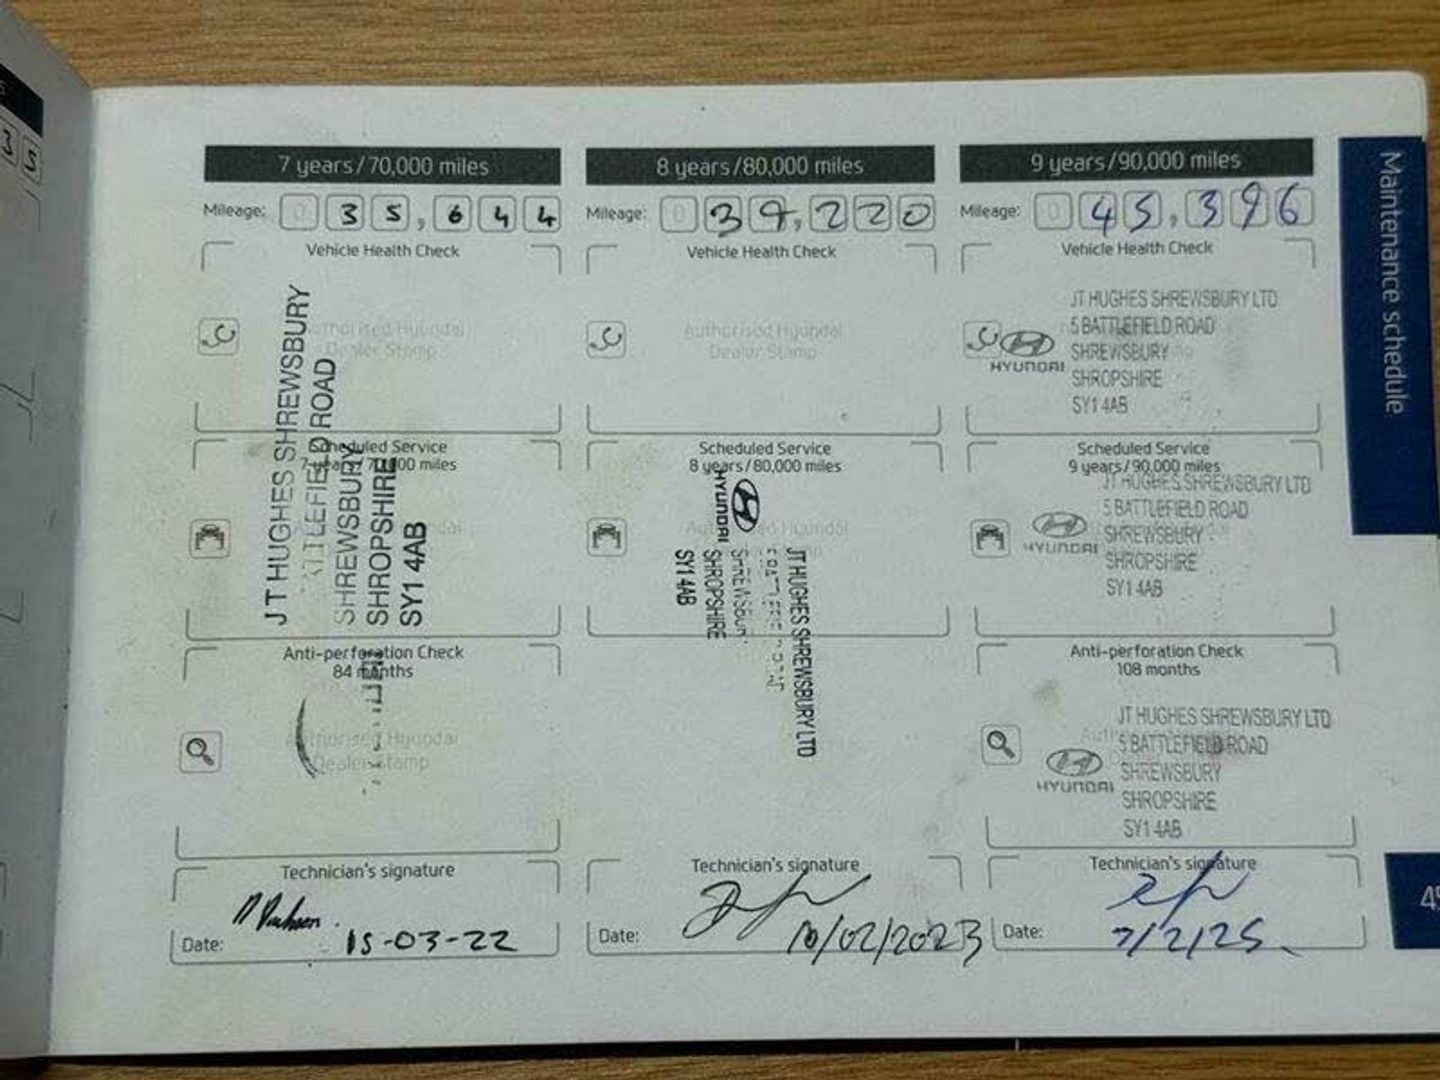 3 5
7 years/70,000 miles
Mileage: 0 3 5 , 6 4 4
Vehicle Health Check
Authorised Hyundai
Dealer Stamp
JT HUGHES SHREWSBURY
BATTLEFIELD ROAD
SHREWSBURY
SHROPSHIRE
SY1 4AB
Scheduled Service
7 years/70,000 miles
Anti-perforation Check
84 months
Authorised Hyundai
Dealer Stamp
Technician's signature
Date: 15-03-22
8 years/80,000 miles
Mileage: 0 3 9 , 2 2 0
Vehicle Health Check
Authorised Hyundai
Dealer Stamp
Scheduled Service
8 years/80,000 miles
HYUNDAI
JT HUGHES SHREWSBURY LTD
SHREWSBURY
SHROPSHIRE
SY1 4AB
Technician's signature
Date: 10/02/2023
9 years/90,000 miles
Mileage: 0 4 5 , 3 9 6
Vehicle Health Check
HYUNDAI
JT HUGHES SHREWSBURY LTD
5 BATTLEFIELD ROAD
SHREWSBURY
SHROPSHIRE
SY1 4AB
Scheduled Service
9 years/90,000 miles
HYUNDAI
JT HUGHES SHREWSBURY LTD
5 BATTLEFIELD ROAD
SHREWSBURY
SHROPSHIRE
SY1 4AB
Anti-perforation Check
108 months
HYUNDAI
JT HUGHES SHREWSBURY LTD
5 BATTLEFIELD ROAD
SHREWSBURY
SHROPSHIRE
SY1 4AB
Technician's signature
Date: 7/2/25
Maintenance schedule